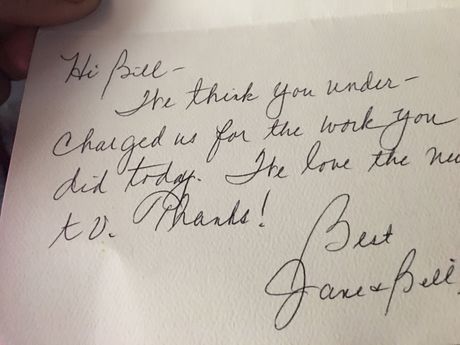 Hi Bill-
We think you under-
charged us for the work you
did today. We love the new
t v. Thanks!
Best
Jane & Bill